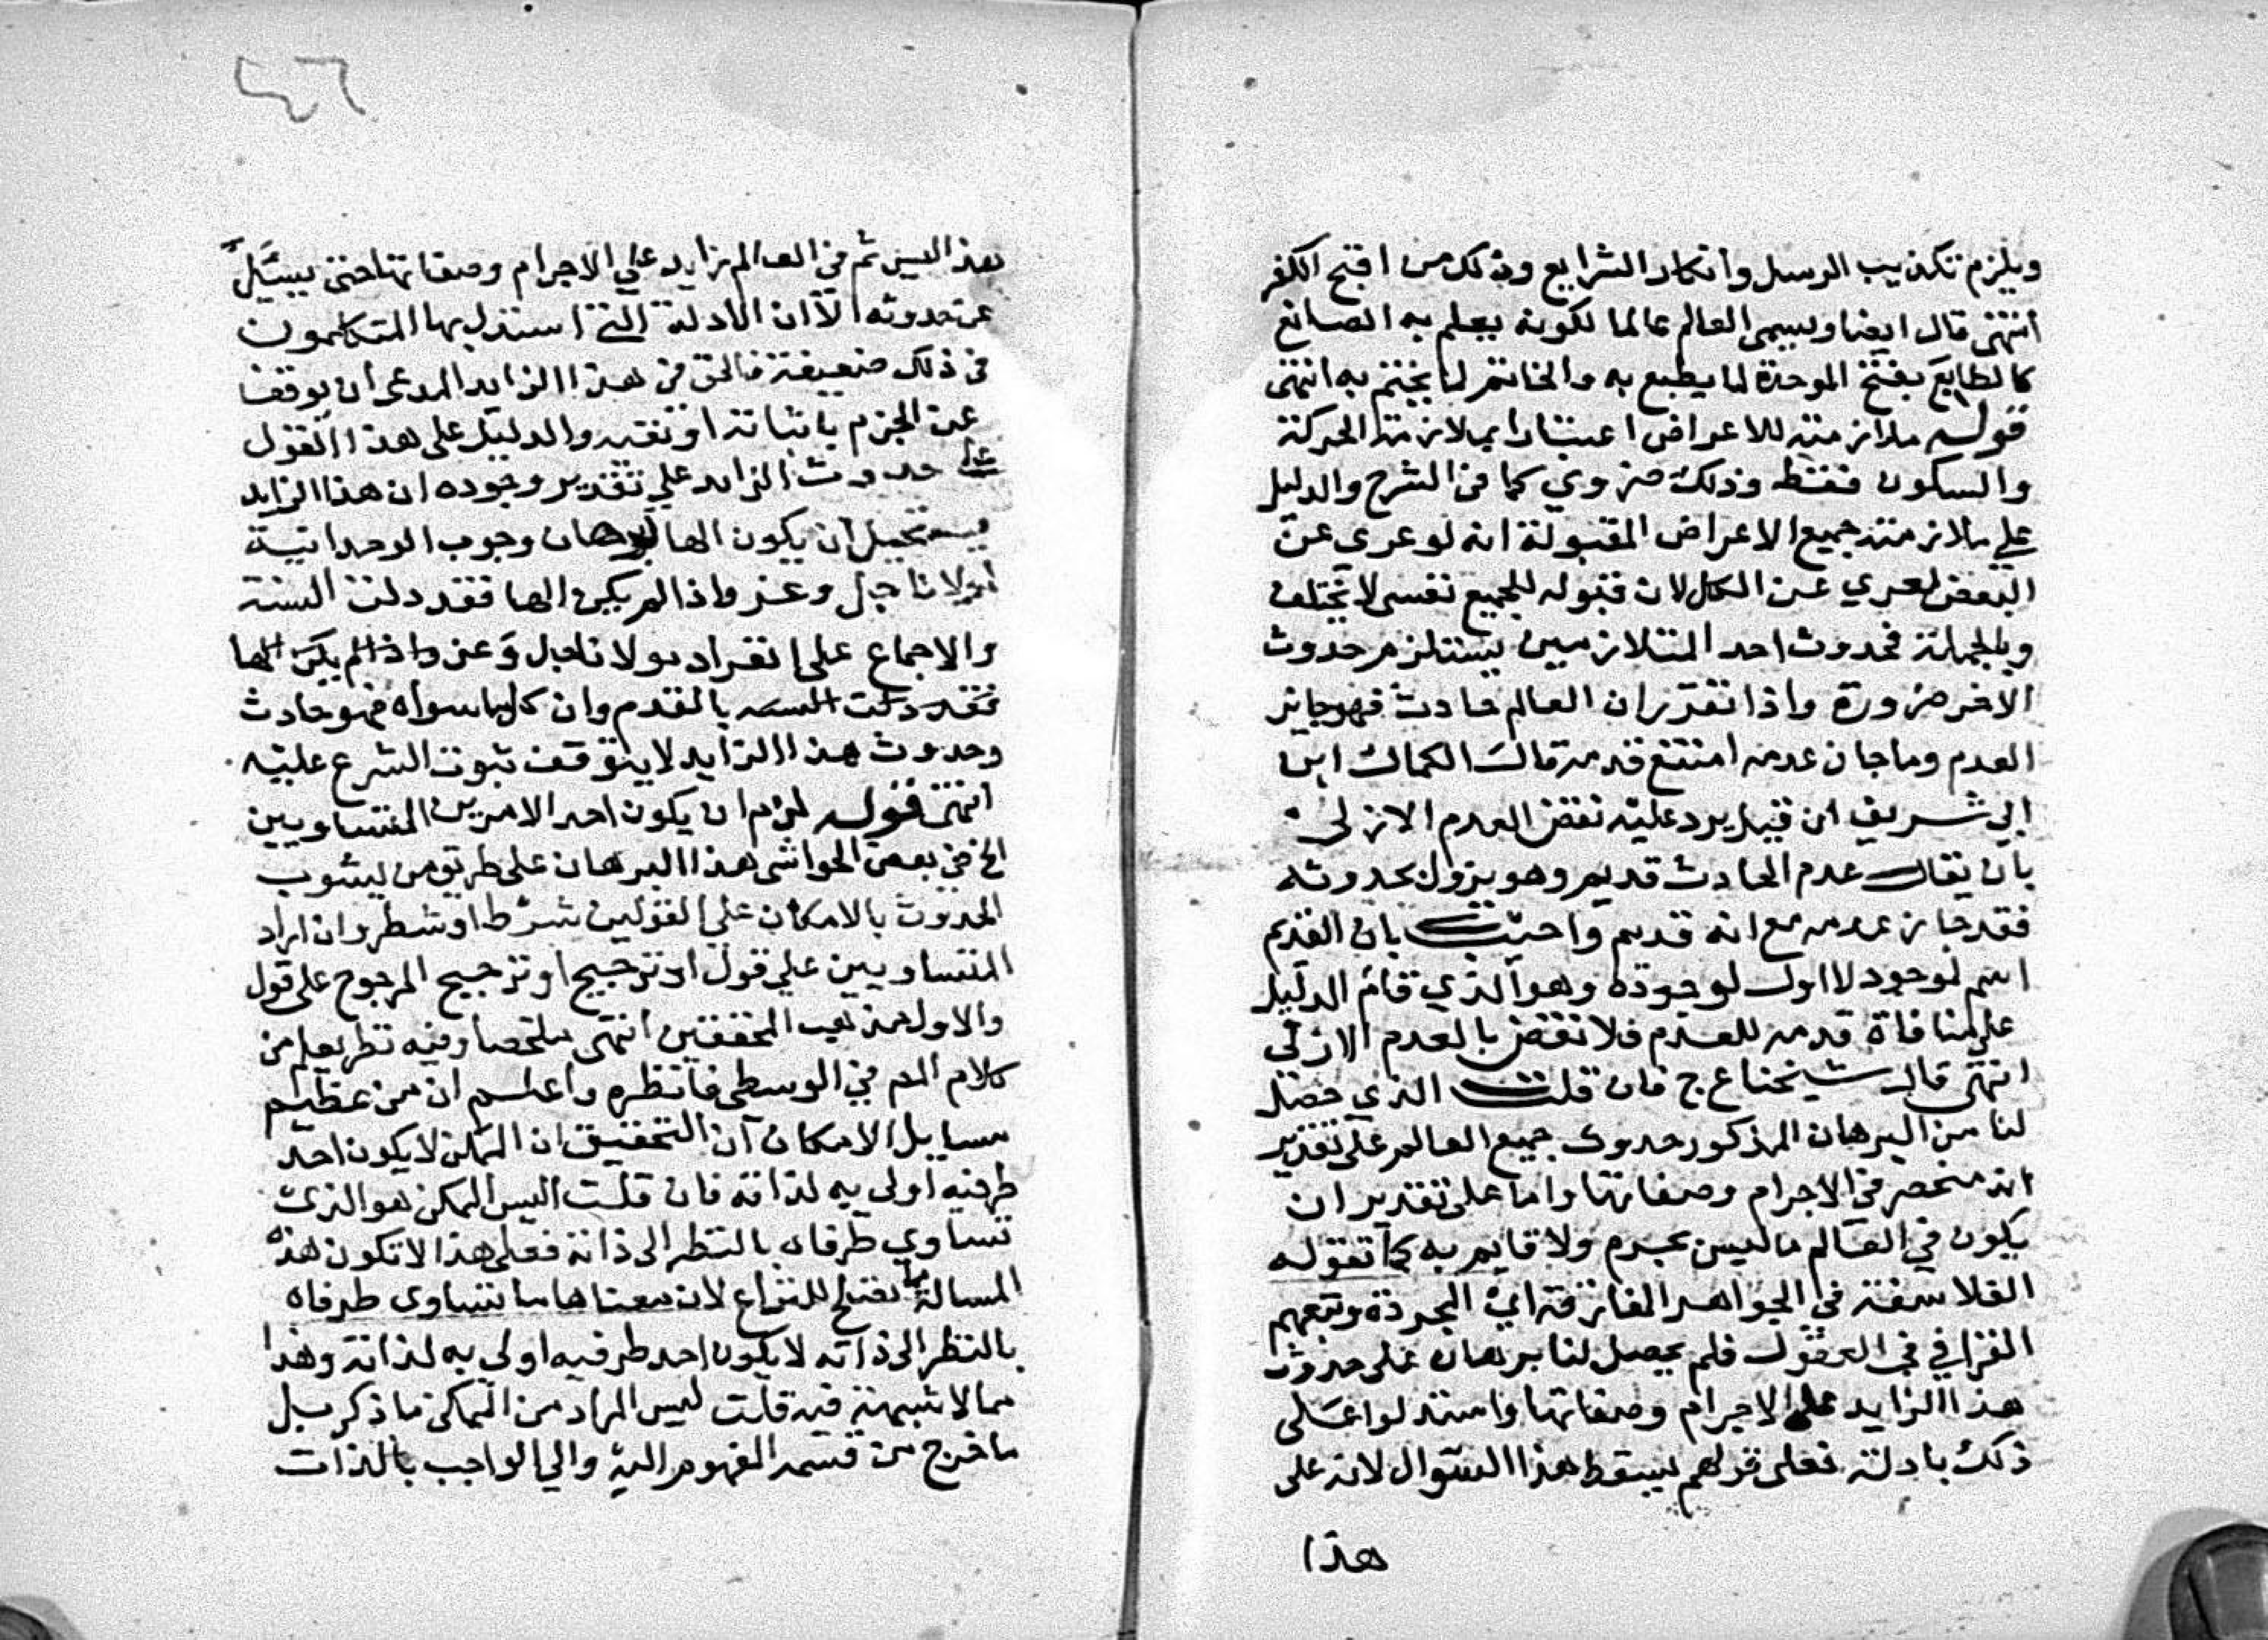 ويلزم تكذيب الرسل وانكار الشرايع وذلك من اقبح الكفر
انتهى قال ايضا ويسمى العالم عالما لكونه يعلم به الصانع
كالطابع بفتح الموحدة لما يطبع به والخاتم لما يختم به انتهى
قوله ملازمته للاعراض اعتبارا بملازمة الحركة
والسكون فقط وذلك ضروي كما في الشرح والدليل
علي ملازمته جميع الاعراض المقبولة انه لو عرى عن
البعض لعري عن الكل لان قبوله للجميع نفسى لا يختلف
وبالجملة فحدوث احد المتلازمين يستلزم حدوث
الاخر ضرورة واذا تقرر ان العالم حادث فهو جايز
العدم وما جاز عدمه امتنع قدمه قال الكمال ابن
ابي شريف ان قيل يرد عليه نقض العدم الازلي
بان يقال عدم الحادث قديم وهو يزول بحدوثه
فقد جاز عدمه مع انه قديم واجيب بان القديم
اسم لموجود لا اول لوجوده وهو الذي قام الدليل
على منافاة قدمه للعدم فلا نقض بالعدم الازلي
انتهى قال شيخنا ع ج فان قلت الذي حصل
لنا من البرهان المذكور حدوث جميع العالم على تقدير
انه منحصر في الاجرام وصفاتها واما على تقدير ان
يكون في العالم ما ليس بجرم ولا قايم به كما تقوله
الفلاسفة في الجواهر المفارقة اي المجردة وتبعهم
الغزالي في العقول فلم يحصل لنا برهان على حدوث
هذا الزايد على الاجرام وصفاتها واستدلوا على
ذلك بادلة فعلى قولهم يسقط هذا السوال لانه على
هذا
٤٦
هذا ليس ثم في العالم زايد علي الاجرام وصفاتها حتى يسئل
عن حدوثه الا ان الادلة التي استدل بها المتكلمون
في ذلك ضعيفة فالحق في هذا الزايد المدعى ان يوقف
عن الجزم باثباته او نفيه والدليل على هذا القول
على حدوث الزايد علي تقدير وجوده ان هذا الزايد
يستحيل ان يكون الها لبرهان وجوب الوحدانية
لمولانا جل وعز واذا لم يكن الها فقد دلت السنة
والاجماع على انفراد مولانا جل وعز واذا لم يكن الها
فقد دلت السنه بالقدم وان كل ما سواه فهو حادث
وحدوث هذا الزايد لا يتوقف ثبوت الشرع عليه
انتهى قوله لزم ان يكون احد الامرين المتساويين
الخ في بعض الحواشي هذا البرهان على طريق من يشوب
الحدوث بالامكان علي القولين شرط او شطر وان اراد
المتساويين علي قول او ترجيح او ترجيح المرجوح على قول
والاول مذهب المحققين انتهى ملخصا وفيه نظر يعلم من
كلام المص في الوسطى فانظره واعلم ان من عظيم
مسايل الامكان ان التحقيق ان الممكن لا يكون احد
طرفيه اولى به لذاته فان قلت اليس الممكن هو الذي
تساوي طرفاه بالنظر الى ذاته فعلى هذا لا تكون هذه
المسالة مما تصلح للنزاع لان معناها ما تساوى طرفاه
بالنظر الى ذاته لا يكون احد طرفيه اولى به لذاته وهذا
مما لا شبهة فيه قلت ليس المراد من الممكن ما ذكر بل
ما خرج من قسمة المفهوم اليه والي الواجب بالذات